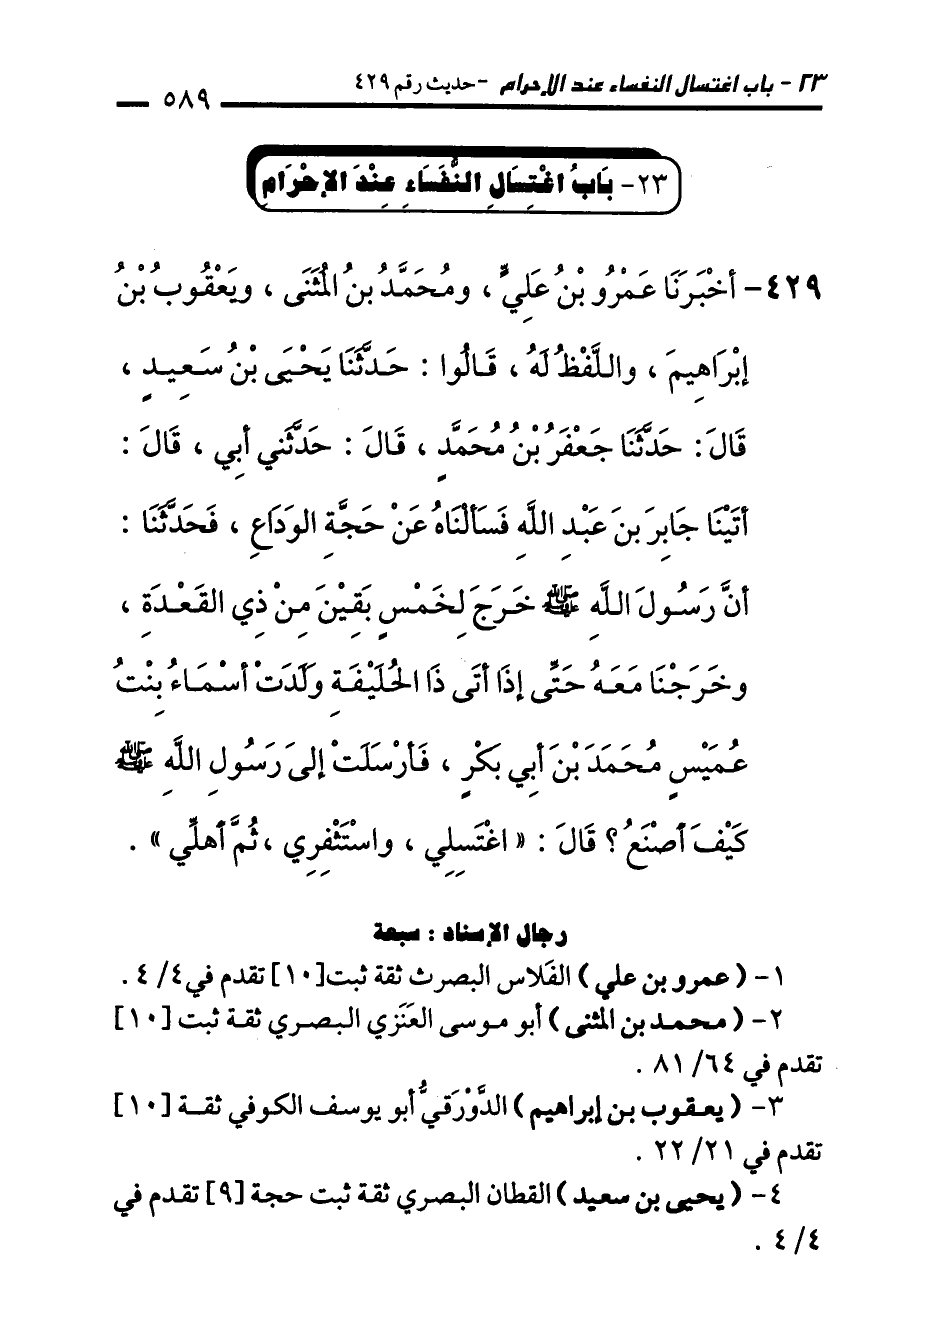 ٢٣ - باب اغتسال النفساء عند الإحرام - حديث رقم ٤٢٩
٥٨٩
٢٣- بَابُ اغْتِسَالِ النُّفَسَاءِ عِنْدَ الإِحْرَامِ
٤٢٩- أخْبَرَنَا عَمْرُو بْنُ عَلِيٍّ ، ومُحَمَّدُ بنُ المُثَنَى ، ويَعْقُوبُ بْنُ
إبْرَاهِيمَ ، واللَّفْظُ لَهُ ، قَالُوا : حَدَّثَنَا يَحْيَى بْنُ سَعِيدٍ ،
قَالَ : حَدَّثَنَا جَعْفَرُ بْنُ مُحَمَّدٍ ، قَالَ : حَدَّثَنِي أبِي ، قَالَ :
أتَيْنَا جَابِرَ بنَ عَبْدِ اللَّهِ فَسَألْنَاهُ عَنْ حَجَّةِ الوَدَاعِ ، فَحَدَّثَنَا :
أنَّ رَسُولَ اللَّهِ ﷺ خَرَجَ لِخَمْسٍ بَقِيْنَ مِنْ ذِي القَعْدَةِ ،
وخَرَجْنَا مَعَهُ حَتَّى إذَا أتَى ذَا الحُلَيْفَةِ ولَدَتْ أسْمَاءُ بِنْتُ
عُمَيْسٍ مُحَمَدَ بْنَ أبِي بَكْرٍ ، فَأرْسَلَتْ إلَى رَسُولِ اللَّهِ ﷺ
كَيْفَ أصْنَعُ ؟ قَالَ : « اغْتَسِلِي ، واسْتَثْفِرِي ، ثُمَّ أهلِّي » .
رجال الإسناد : سبعة
١- ( عمرو بن علي ) الفَلاس البصرث ثقة ثبت [١٠] تقدم في ٤/ ٤ .
٢- ( محمد بن المثنى ) أبو موسى العَنَزي البصري ثقة ثبت [١٠]
تقدم في ٦٤/ ٨١ .
٣- ( يعقوب بن إبراهيم ) الدَّوْرَقيُّ أبو يوسف الكوفي ثقة [١٠]
تقدم في ٢١/ ٢٢ .
٤- ( يحيى بن سعيد ) القطان البصري ثقة ثبت حجة [٩] تقدم في
٤/ ٤ .